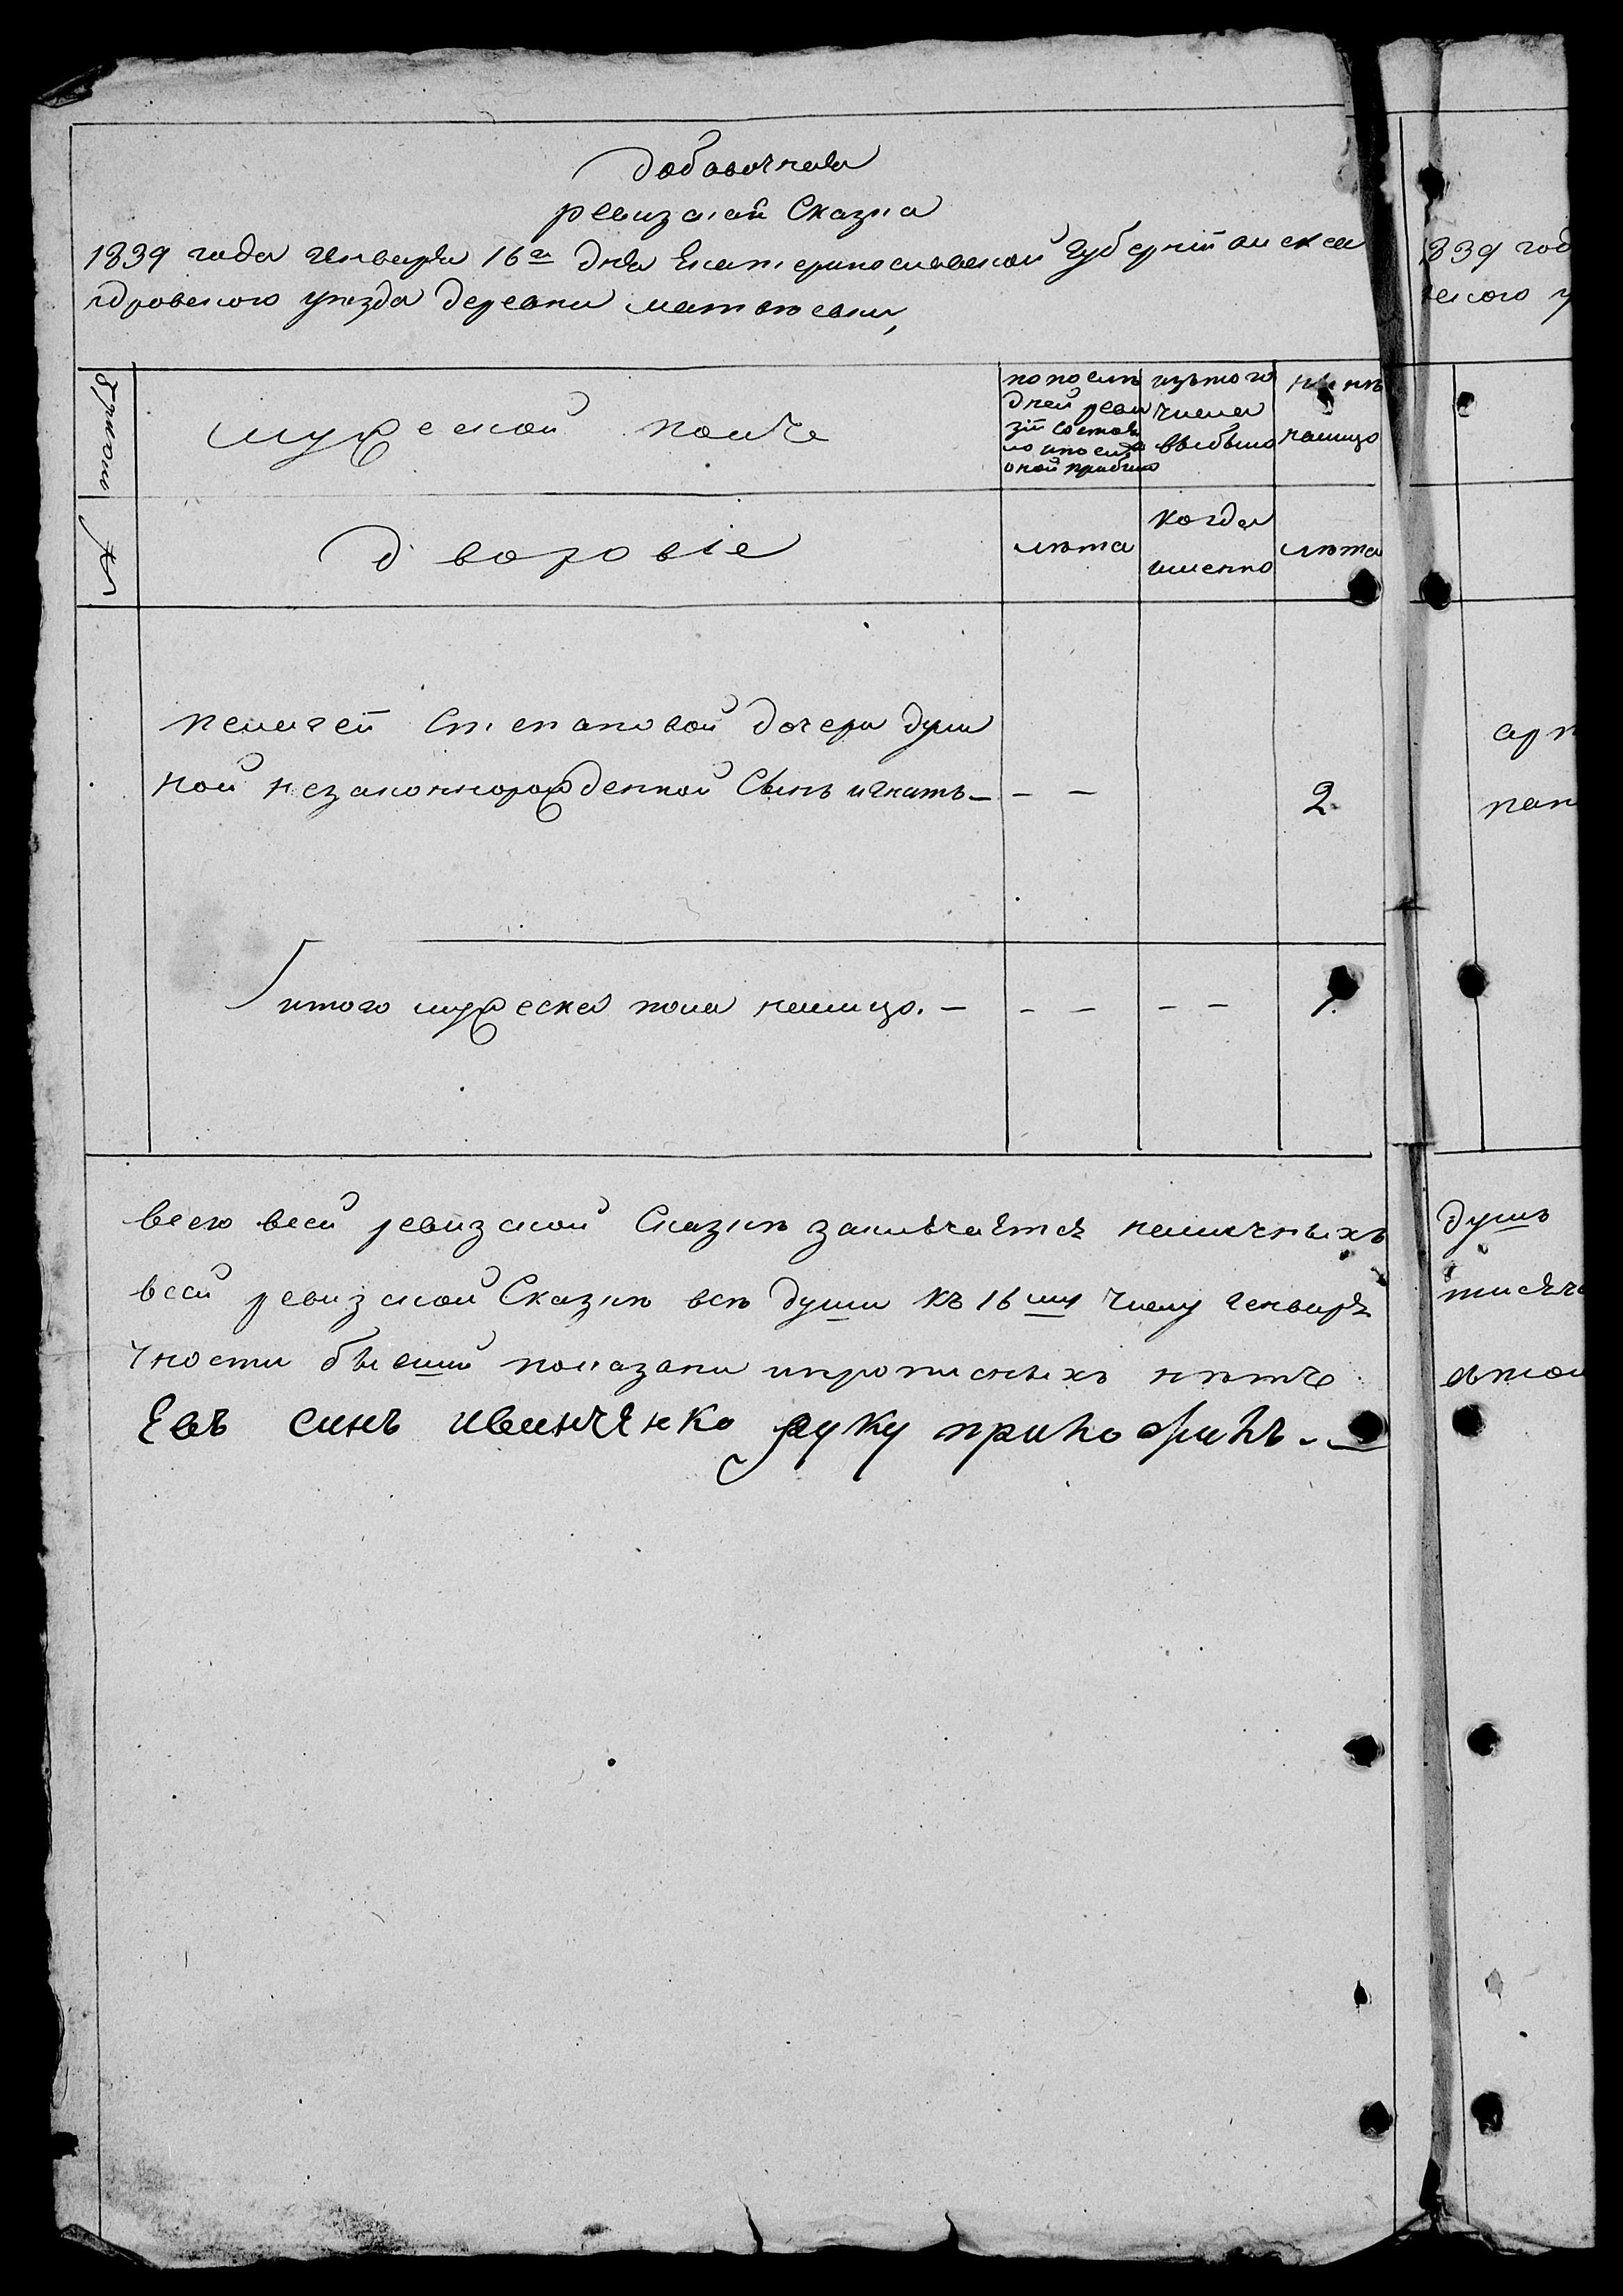 добавочная
ревизская Сказка
1839 года генваря 16го дня Екатеринославской Губернiи алекса
ндровского уезда деревни
мужеской полъ
по после
дней реви
зiи состоя
ло и после
оной прибыло
изъ того
числа
выбыло
ныне
налицо
дворовые
лета
когда
именно
лета
Степановой дочери
ной незаконнорожденной Сынъ игнатъ – – –
2
итого мужеска пола налицо. – – – – –
1
всего всей ревизской Сказке заключается наличныхъ
всей ревизской Сказке все души къ 16му числу генваря
чности бывшии показани ипрописныхъ нетъ
Евъ синъ ивинченко руку приложилъ. –
1839 год
душъ